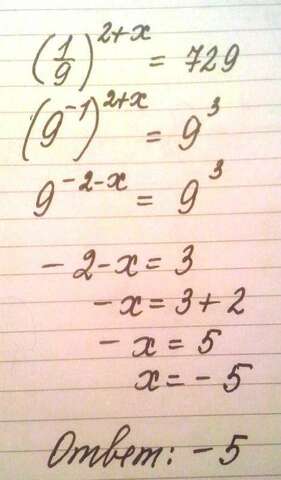 (1/9)^2+x = 729
(9^-1)^2+x = 9^3
9^-2-x = 9^3
-2-x = 3
-x = 3+2
-x = 5
x = -5
Ответ: -5